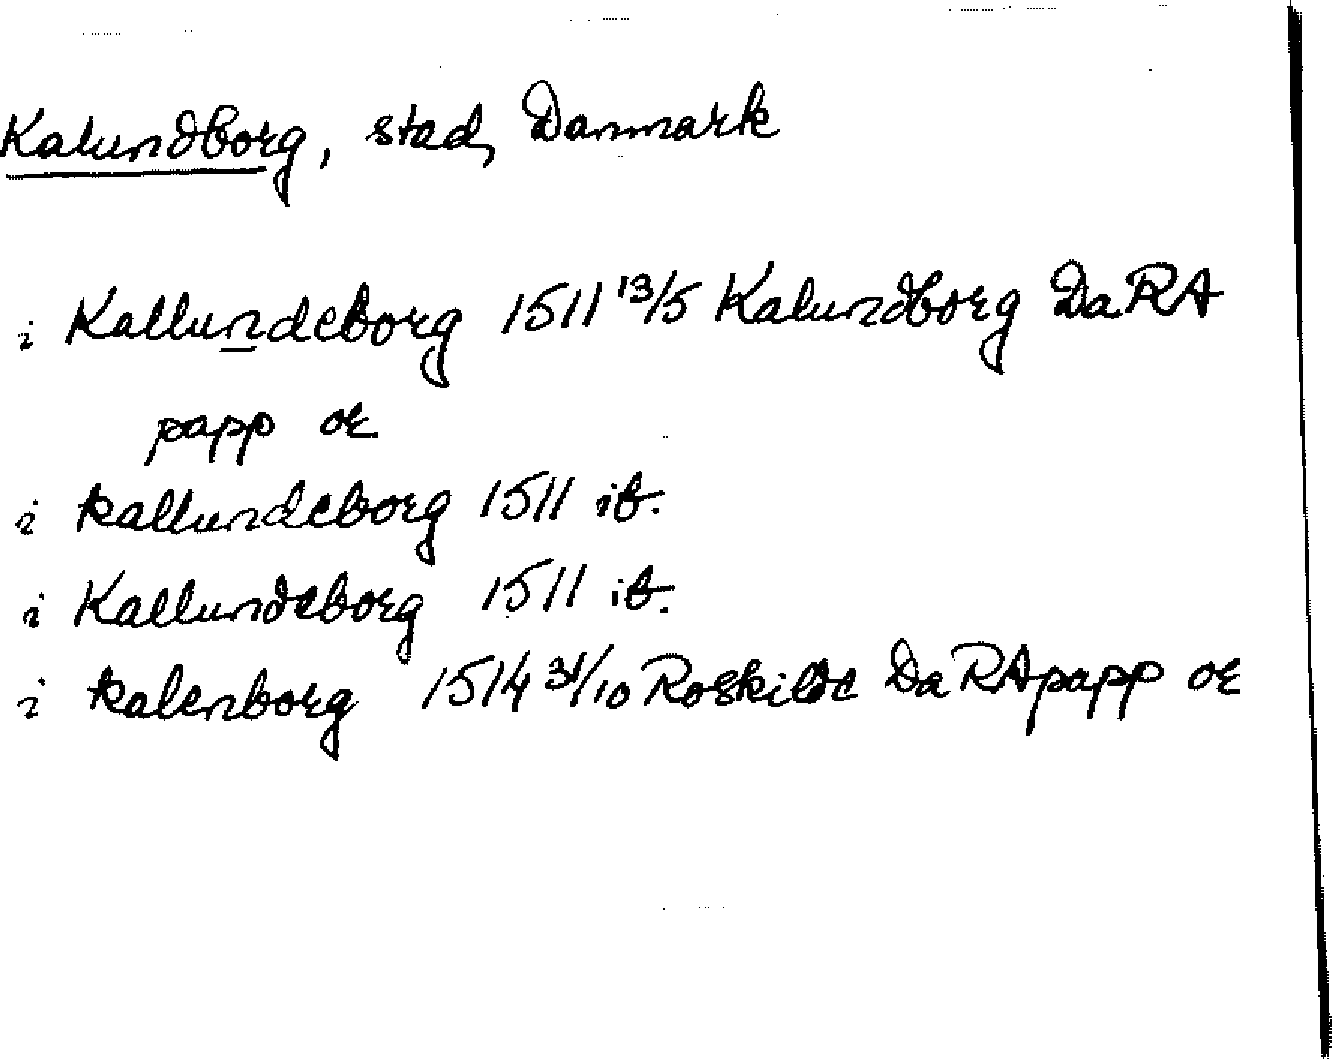 Kalundborg, stad, Danmark
i Kallundeborg 1511 13/5 Kalundborg DaRA
papp or
i kallundeborg 1511 ib.
i Kallundeborg 1511 ib.
i kalenborg 1514 31/10 Roskilde DaRA papp or